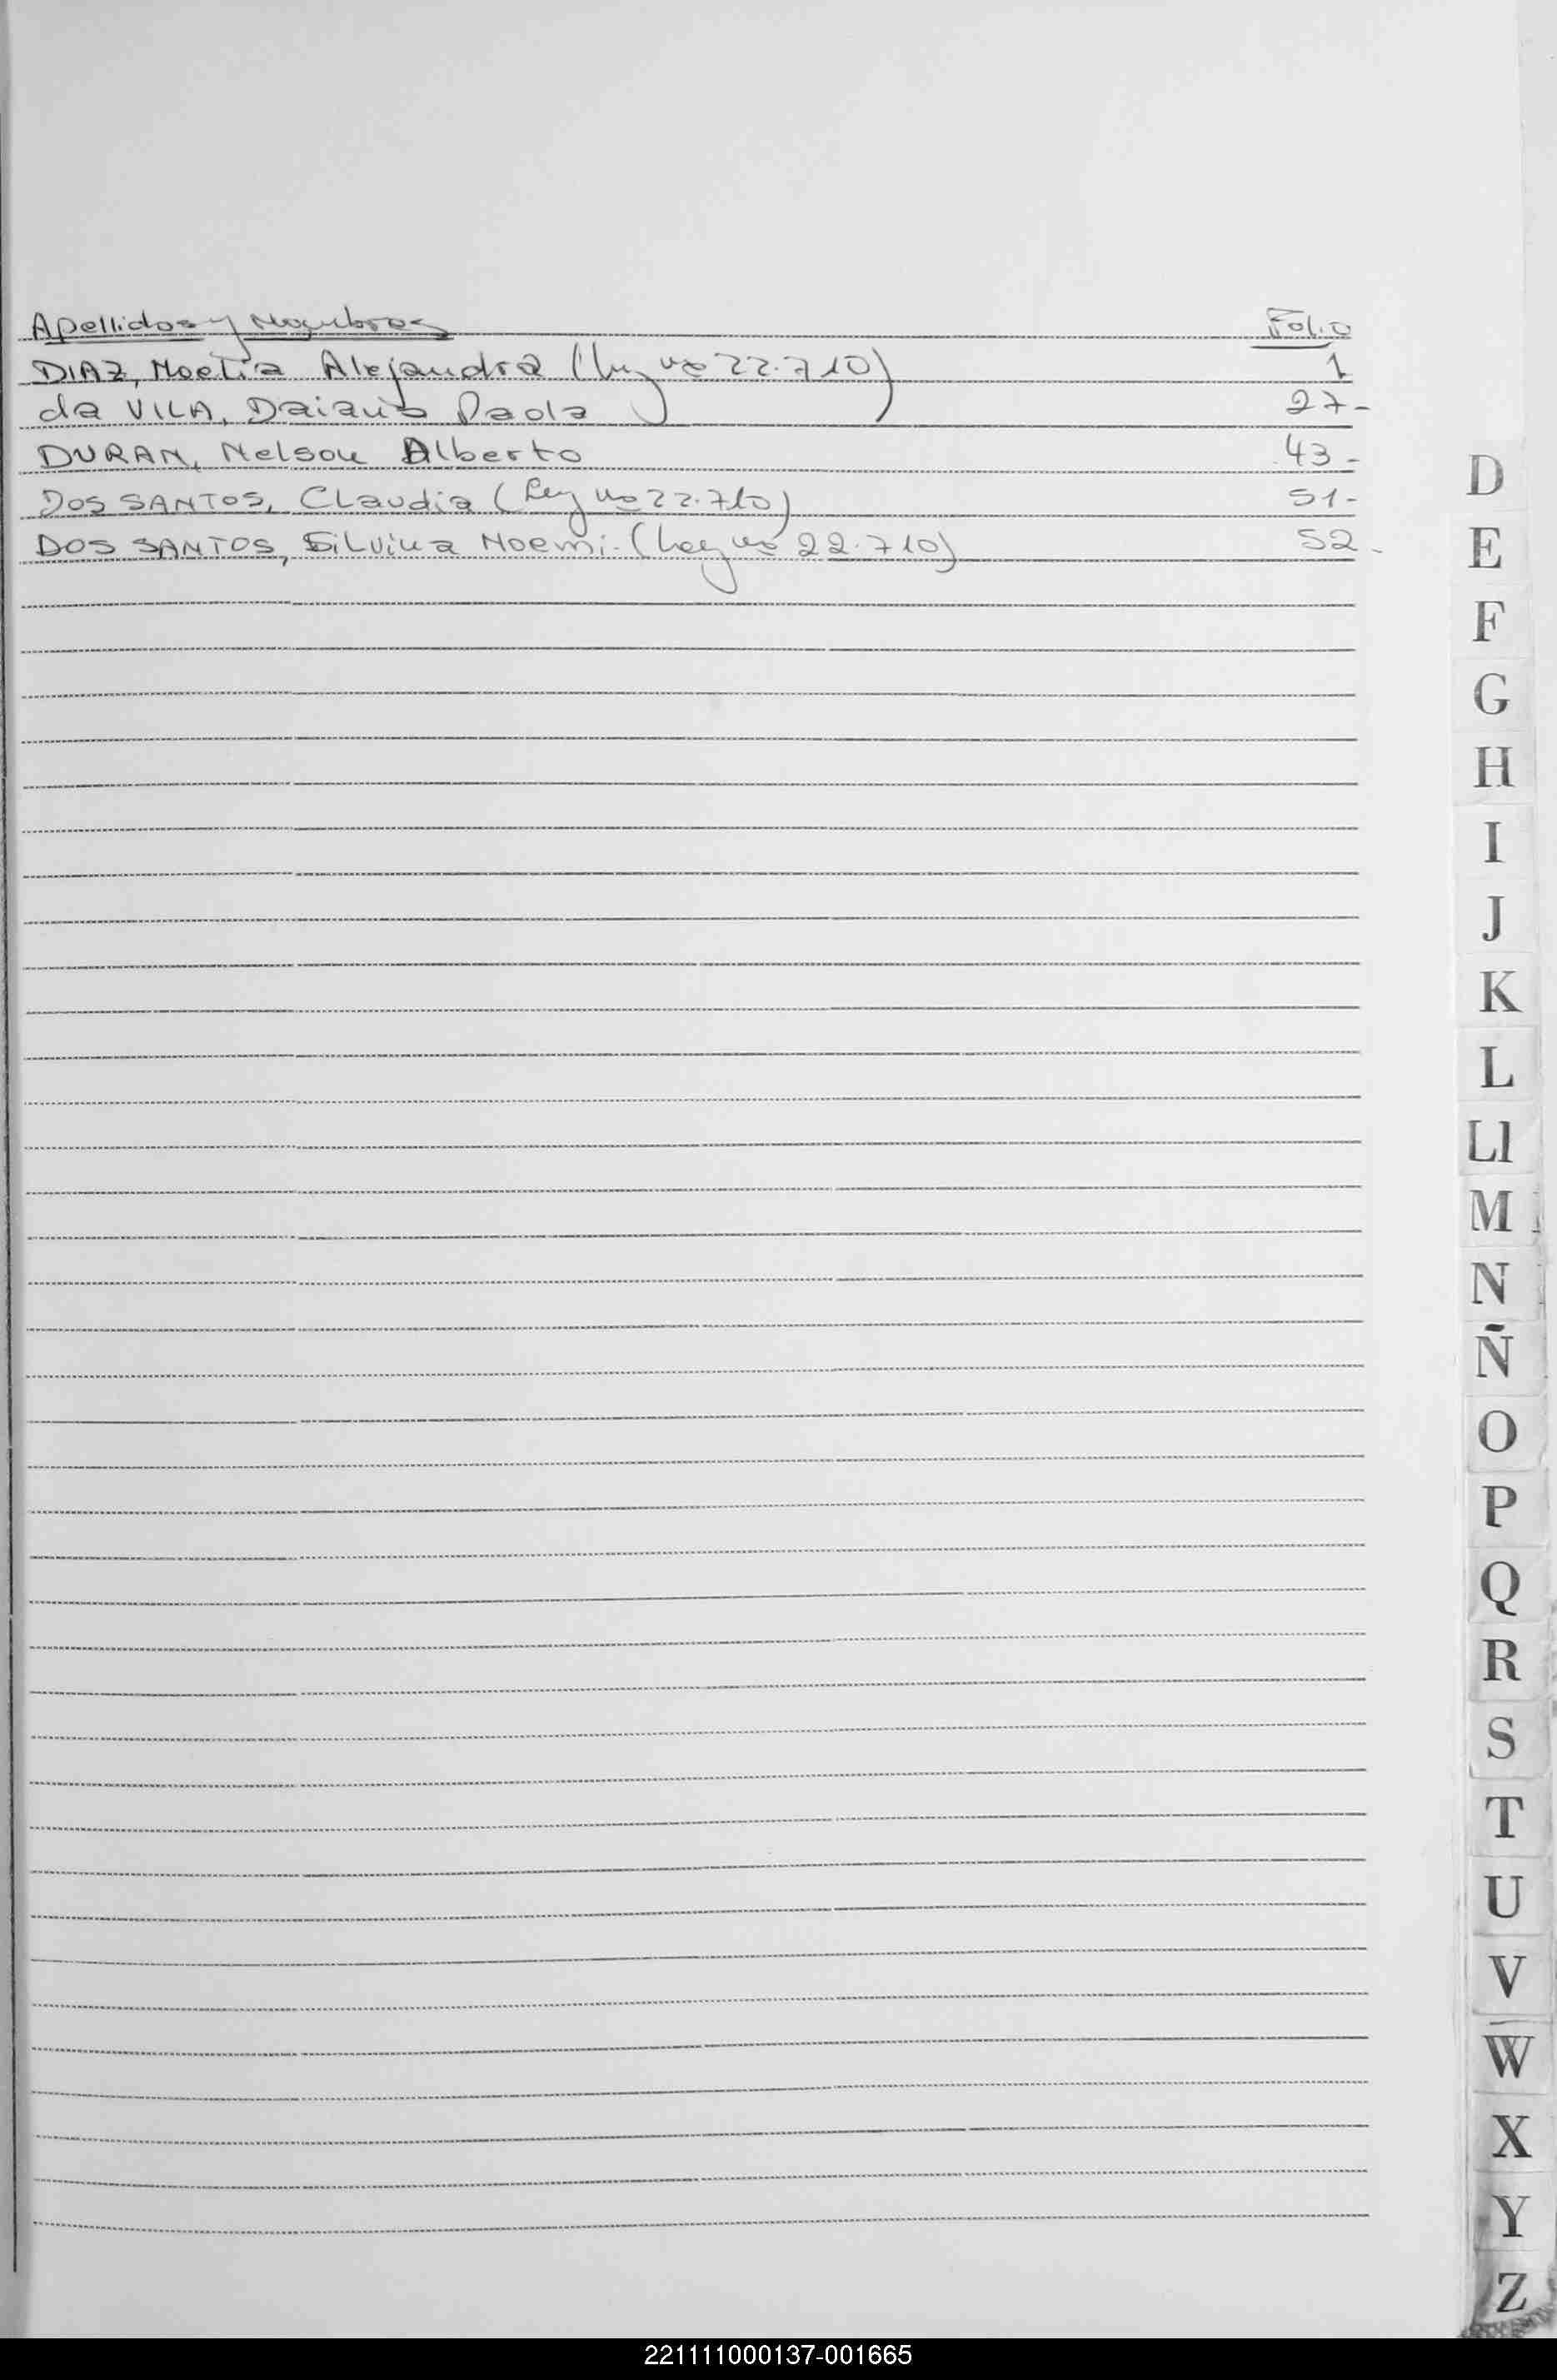 Apellidos y Nombres Folio
DIAZ, Noelia Alejandra (Ley nº 22.710) 1
da VILA, Daiana Paola 27-
DURAN, Nelson Alberto 43-
DOS SANTOS, Claudia (Ley nº 22.710) 51-
DOS SANTOS, Silvina Noemi. (Ley nº 22.710) 52-
D
E
F
G
H
I
J
K
L
Ll
M
N
Ñ
O
P
Q
R
S
T
U
V
W
X
Y
Z
221111000137-001665